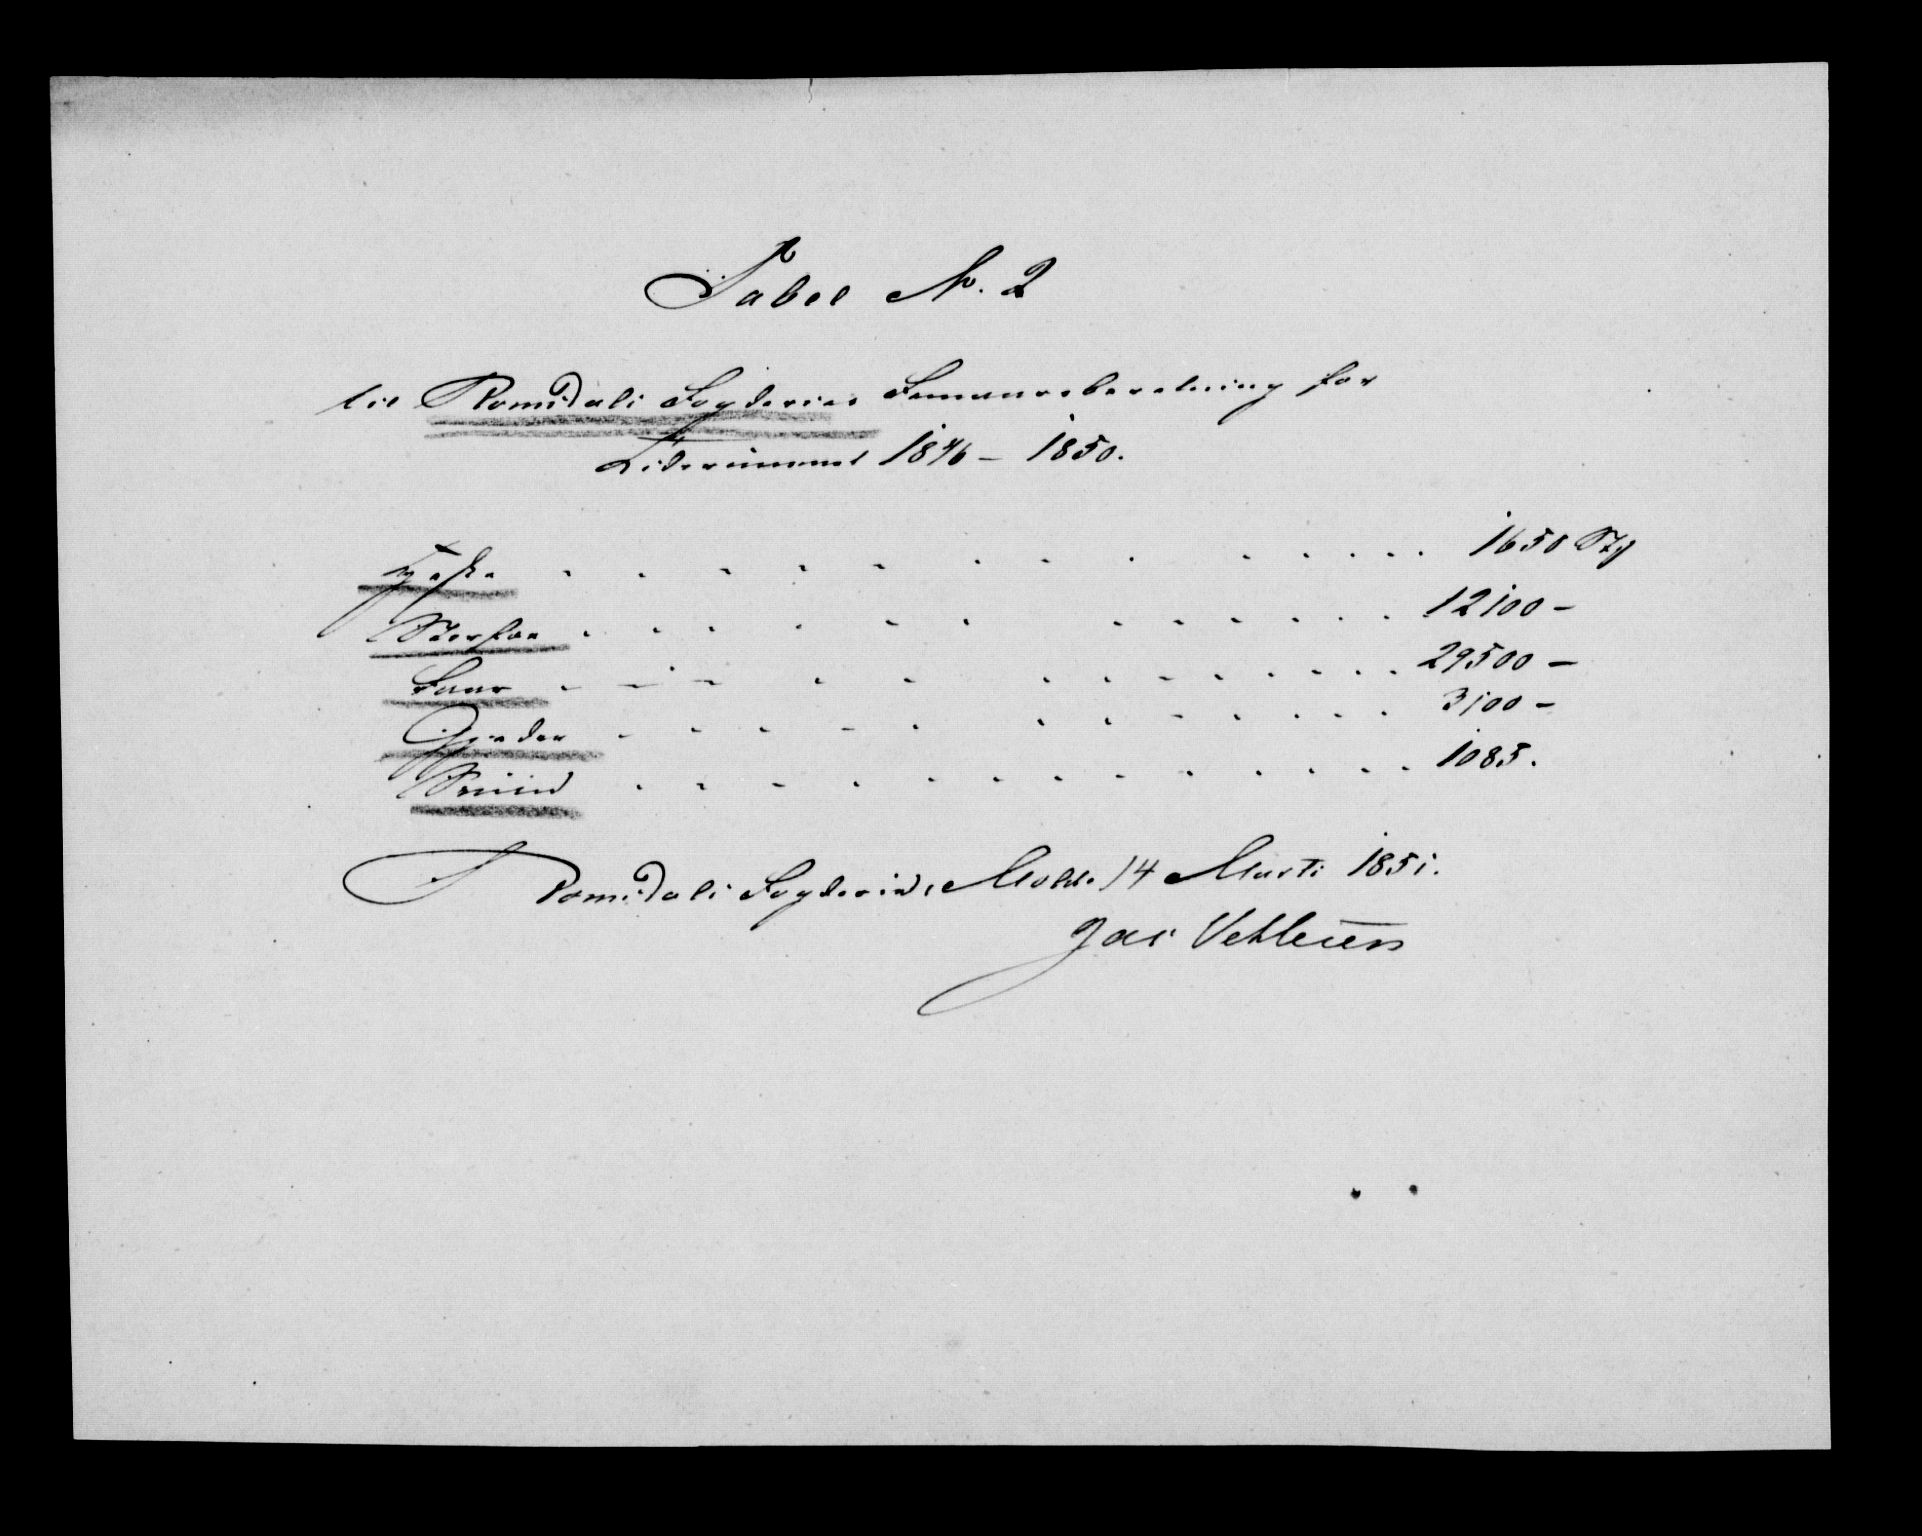 Tabel No. 2
til Romsdals Fogderies Femaarsberetning for
Tidsrummet 1846 - 1850.
Heste . . . . . . . . . . . . . 1650 Stk
Storfæe . . . . . . . . . . . . . 12100 -
Faar . - - . . . . . . . . . 29500 -
Gjeder . . . . . . . . . . . . 3100 -
Sviin . . . . . . . . . . . . . 1085.
Romsdals Fogderie, Molde 14 Marts 1851.
Jac